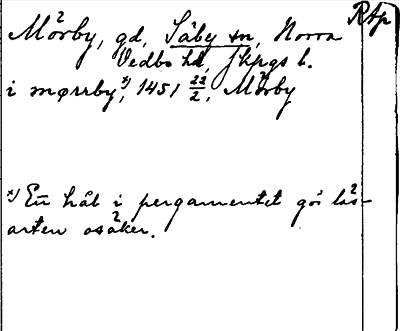 RAp
Mörby, gd, Säby sn, Norra
Vedbo hd, Jkpgs l.
i mørrby x), 1451 22/2, Mörby
x) Ett hål i pergamentet gör läs-
arten osäker.